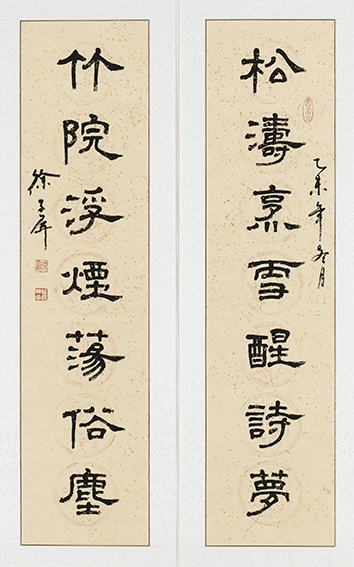 松濤烹雪醒詩夢
乙未年冬月
竹院浮煙蕩俗塵